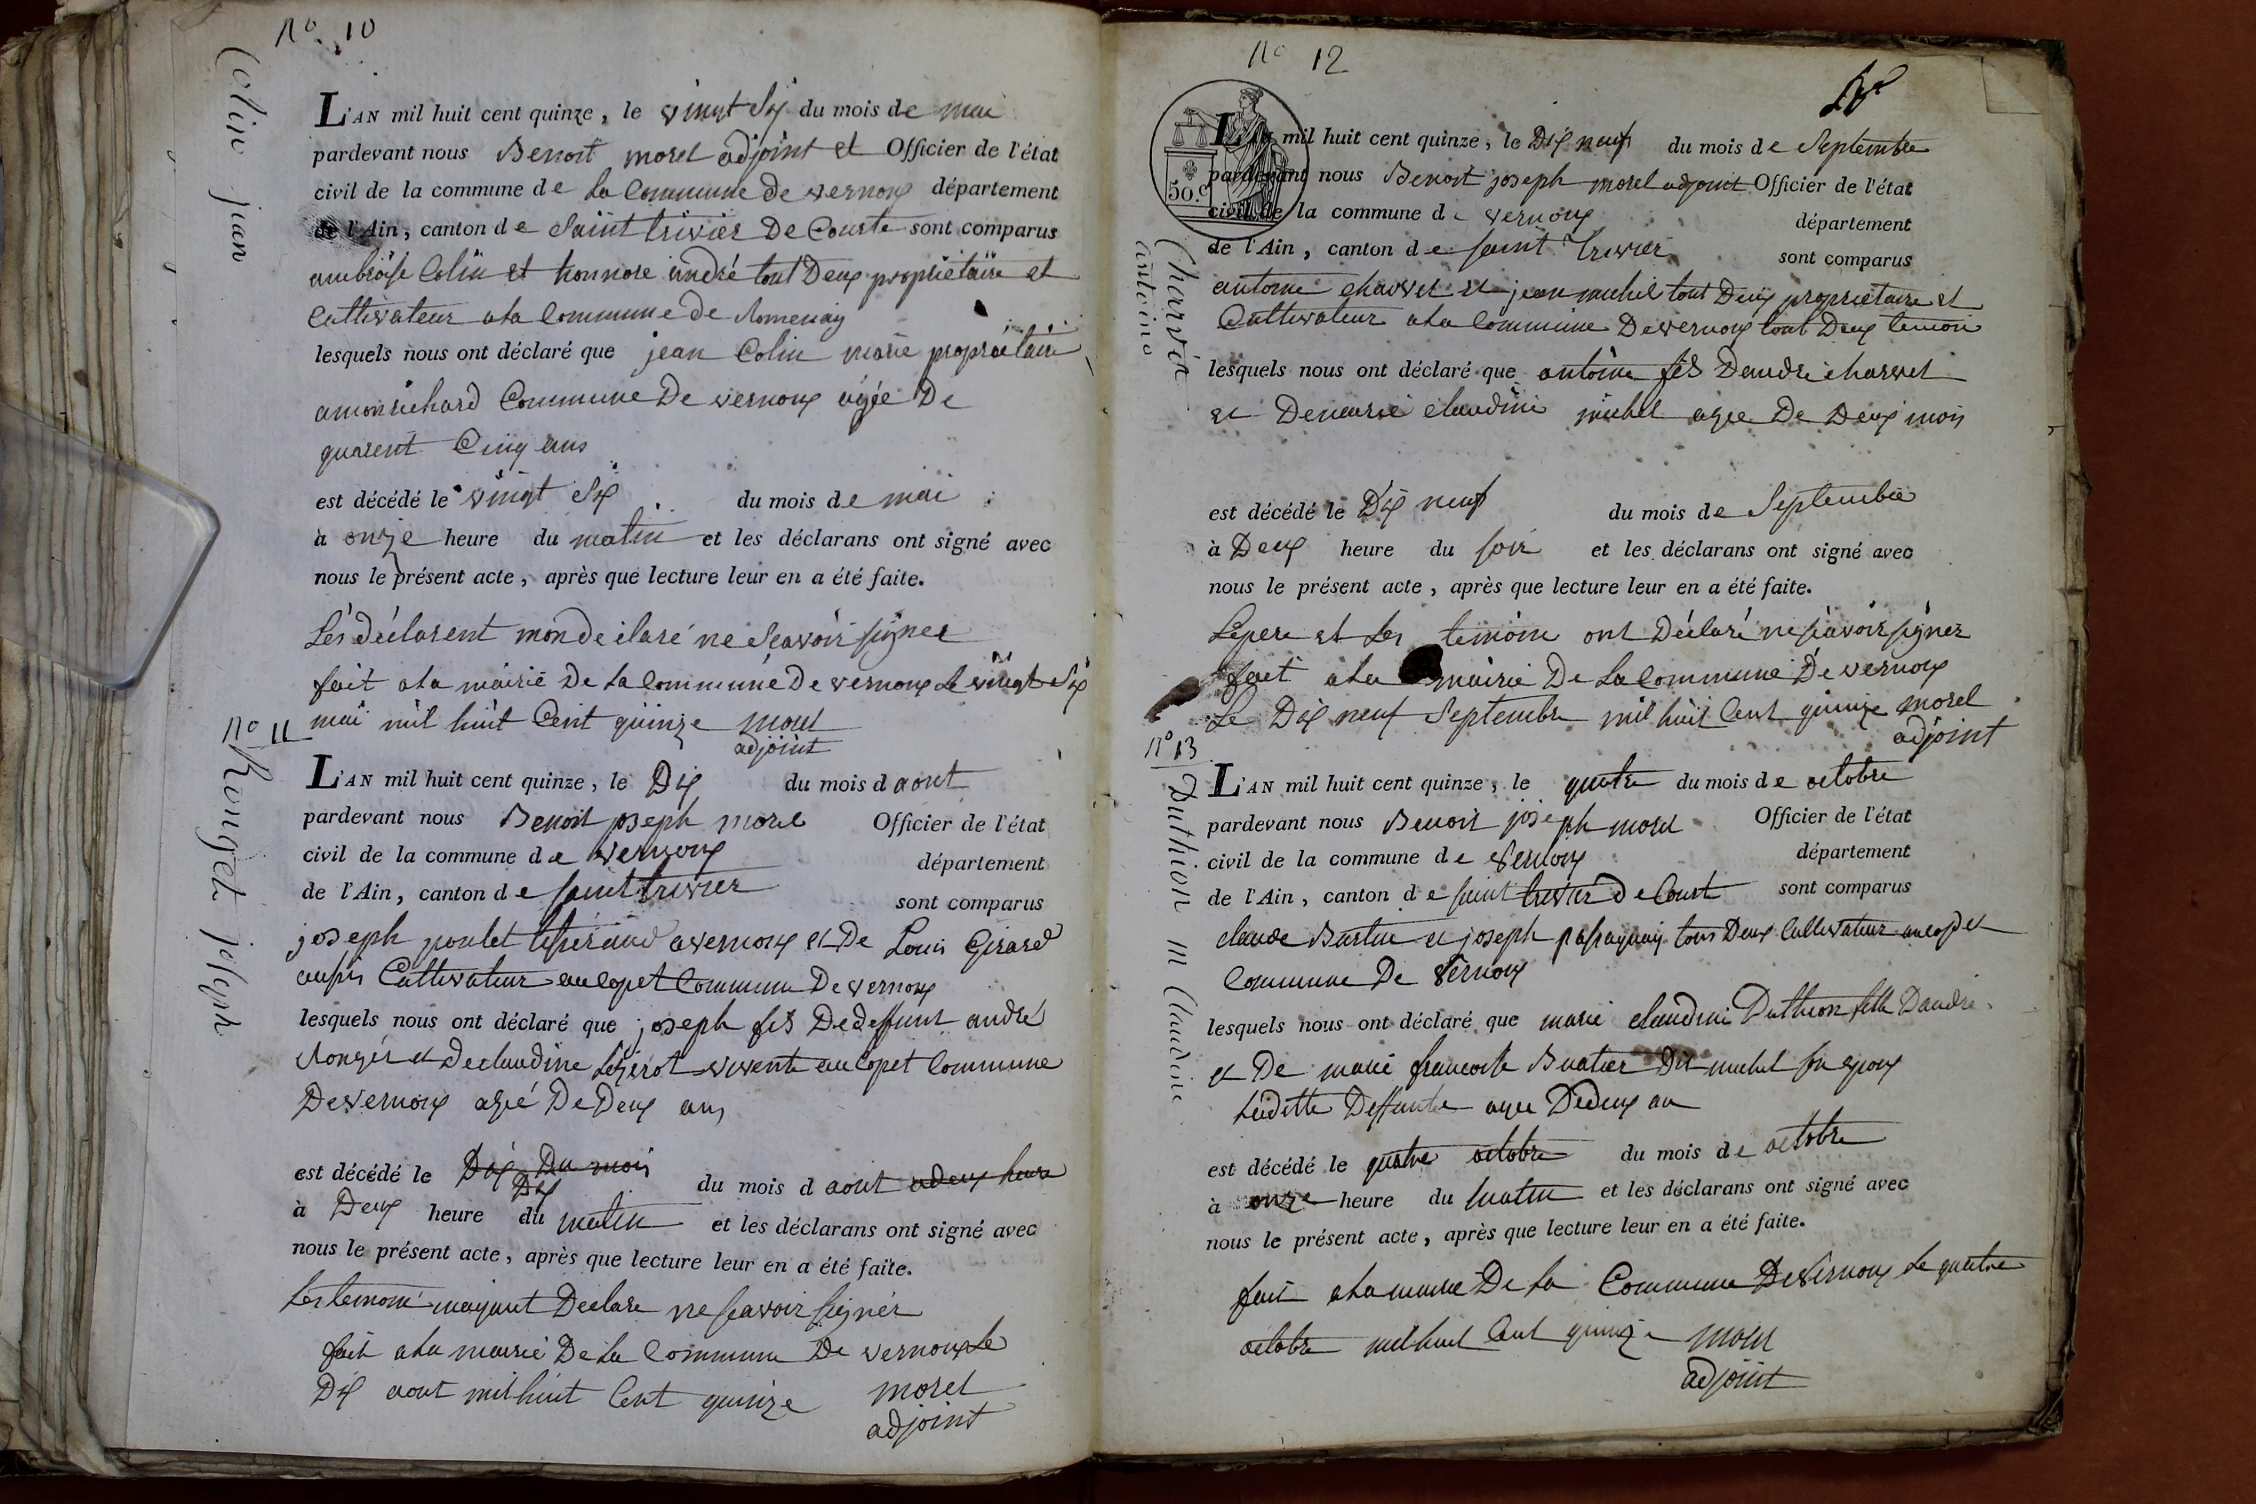 N° 10
Colin jean
L'AN mil huit cent quinze, le vingt Six du mois de mai
pardevant nous Benoit morel adjoint et Officier de l'état
civil de la commune de La Commune De vernoux département
de l'Ain, canton de Saint trivier De Courte sont comparus
ambroise Colin et honnore andré tout Deux propriétaire et
Cultivateur a la Commune de Romenay
lesquels nous ont déclaré que jean Colin marie propriétaire
a monrichard Commune De vernoux agée De
quarent Cinq ans
est décédé le vingt Six du mois de mai
à onze heure du matin et les déclarans ont signé avec
nous le présent acte, après que lecture leur en a été faite.
Les déclarent mon de claré ne Scavoir signer
fait a la mairie De La Commune De vernoux Le vingt Six
mai mil huit Cent quinze morel
adjoint
N° 11
Rouget joseph
L'AN mil huit cent quinze, le Dix du mois d aout
pardevant nous Benoit joseph morel Officier de l'état
civil de la commune de vernoux département
de l'Ain, canton de saint trivier sont comparus
joseph poulet a vernoux et De Louis Girard
Cultivateur au Copet Commune De vernoux
lesquels nous ont déclaré que joseph fils De deffunt andré
Rongés et De claudine vivente au Copet Commune
De vernoux agé De Deux ans
est décédé le Dix Du mois du mois d aout a deux heure
Dix
à Deux heure du matin et les déclarans ont signé avec
nous le présent acte, après que lecture leur en a été faite.
Les temoin mayant Declare ne scavoir signer
fait a la mairie De La Commune De vernoux Le
Dix aout mil huit Cent quinze morel
adjoint
N° 12
Charvin
antoine
50.c
L'AN mil huit cent quinze, le Dix neuf du mois de Septembre
pardevant nous Benoit joseph morel adjoint Officier de l'état
civil de la commune de vernoux département
de l'Ain, canton de saint Trivier sont comparus
antoine charvet et jean michel tout Deux propriétaire et
Cultivateur a la Commune De vernoux tout Deux temoin
lesquels nous ont déclaré que antoine fils Dandré charvet
et De marie claudine michel agee De Deux mois
est décédé le Dix neuf du mois de Septembre
à Deux heure du soir et les déclarans ont signé avec
nous le présent acte, après que lecture leur en a été faite.
Le pere et Les temoin ont Déclaré ne scavoir signer
fait a La mairie De La Commune De vernoux
Le Dix neuf Septembre mil huit Cent quinze morel
adjoint
N° 13
Duthion M Claudine
L'AN mil huit cent quinze, le quatre du mois de octobre
pardevant nous Benoit joseph morel Officier de l'état
civil de la commune de vernoux département
de l'Ain, canton de saint trivier De Court sont comparus
claude Burtin et joseph tous Deux Cultivateur au Copet
Commune De vernoux
lesquels nous ont déclaré que marie claudine Duthion fille Dandré
et De marie francoise Buatier Dit michel
Laditte Deffunte agee De deux an
est décédé le quatre octobre du mois de octobre
à onze heure du matin et les déclarans ont signé avec
nous le présent acte, après que lecture leur en a été faite.
fait a La mairie De La Commune De vernoux Le quatre
octobre mil huit Cent quinze morel
adjoint